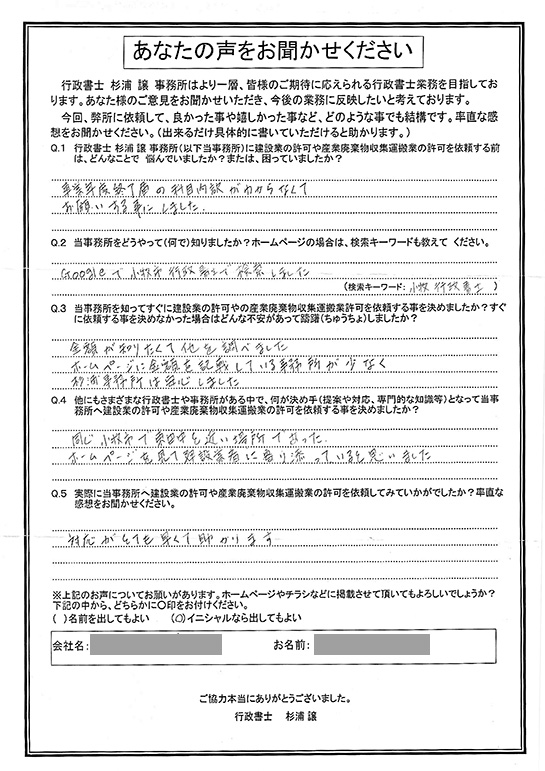 あなたの声をお聞かせください
行政書士 杉浦 譲 事務所はより一層、皆様のご期待に応えられる行政書士業務を目指してお
ります。あなた様のご意見をお聞かせいただき、今後の業務に反映したいと考えております。
今回、弊所に依頼して、良かった事や嬉しかった事など、どのような事でも結構です。率直な感
想をお聞かせください。（出来るだけ具体的に書いていただけると助かります。）
Q.1 行政書士 杉浦 譲 事務所（以下当事務所）に建設業の許可や産業廃棄物収集運搬業の許可を依頼する前
は、どんなことで 悩んでいましたか？または、困っていましたか？
事業年度終了届の科目内訳がわからなくて
お願いする事にしました.
Q.2 当事務所をどうやって（何で）知りましたか？ホームページの場合は、検索キーワードも教えて ください。
Googleで小牧市 行政書士で検索しました
（検索キーワード: 小牧 行政書士 ）
Q.3 当事務所を知ってすぐに建設業の許可やの産業廃棄物収集運搬業許可を依頼する事を決めましたか？すぐ
に依頼する事を決めなかった場合はどんな不安があって躊躇（ちゅうちょ）しましたか？
金額が知りたくて他を調べました
ホームページに金額を記載している事務所が少なく
杉浦事務所は安心しました
Q.4 他にもさまざまな行政書士や事務所がある中で、何が決め手（提案や対応、専門的な知識等）となって当事
務所へ建設業の許可や産業廃棄物収集運搬業の許可を依頼する事を決めましたか？
同じ小牧市で 近い場所であった.
ホームページを見て建設業者に寄り添っていると思いました
Q.5 実際に当事務所へ建設業の許可や産業廃棄物収集運搬業の許可を依頼してみていかがでしたか？率直な
感想をお聞かせください。
対応がとても早くて助かります
※上記のお声についてお願いがあります。ホームページやチラシなどに掲載させて頂いてもよろしいでしょうか？
下記の中から、どちらかに○印をお付けください。
（ ）名前を出してもよい （○）イニシャルなら出してもよい
会社名： お名前：
ご協力本当にありがとうございました。
行政書士 杉浦 譲